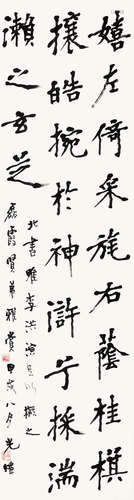 嬉左倚采旄右蔭桂旗
攘皓腕於神滸兮採湍
瀨之玄芝
北書唯李洪演足以擬之
賢弟雅賞甲戌八月光